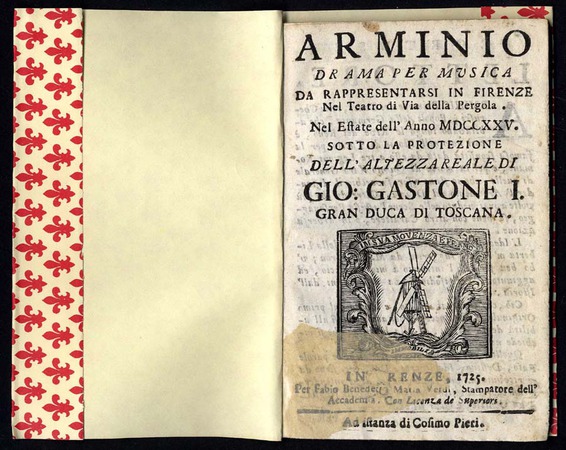 ARMINIO
DRAMA PER MVSICA
DA RAPPRESENTARSI IN FIRENZE
Nel Teatro di Via della Pergola.
Nel Estate dell' Anno MDCCXXV.
SOTTO LA PROTEZIONE
DELL' ALTEZZA REALE DI
GIO: GASTONE I.
GRAN DUCA DI TOSCANA.
IN RENZE, 1725.
Per Fabio Maria Verdi, Stampatore dell'
Accademia. Con Licenza de Superiori.
Ad istanza di Cosimo Pieri.